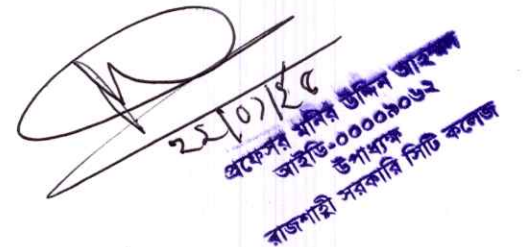 প্রফেসর মনির উদ্দিন আহম্মদ
আইডি-০০০০৯০৬২
উপাধ্যক্ষ
রাজশাহী সরকারি সিটি কলেজ